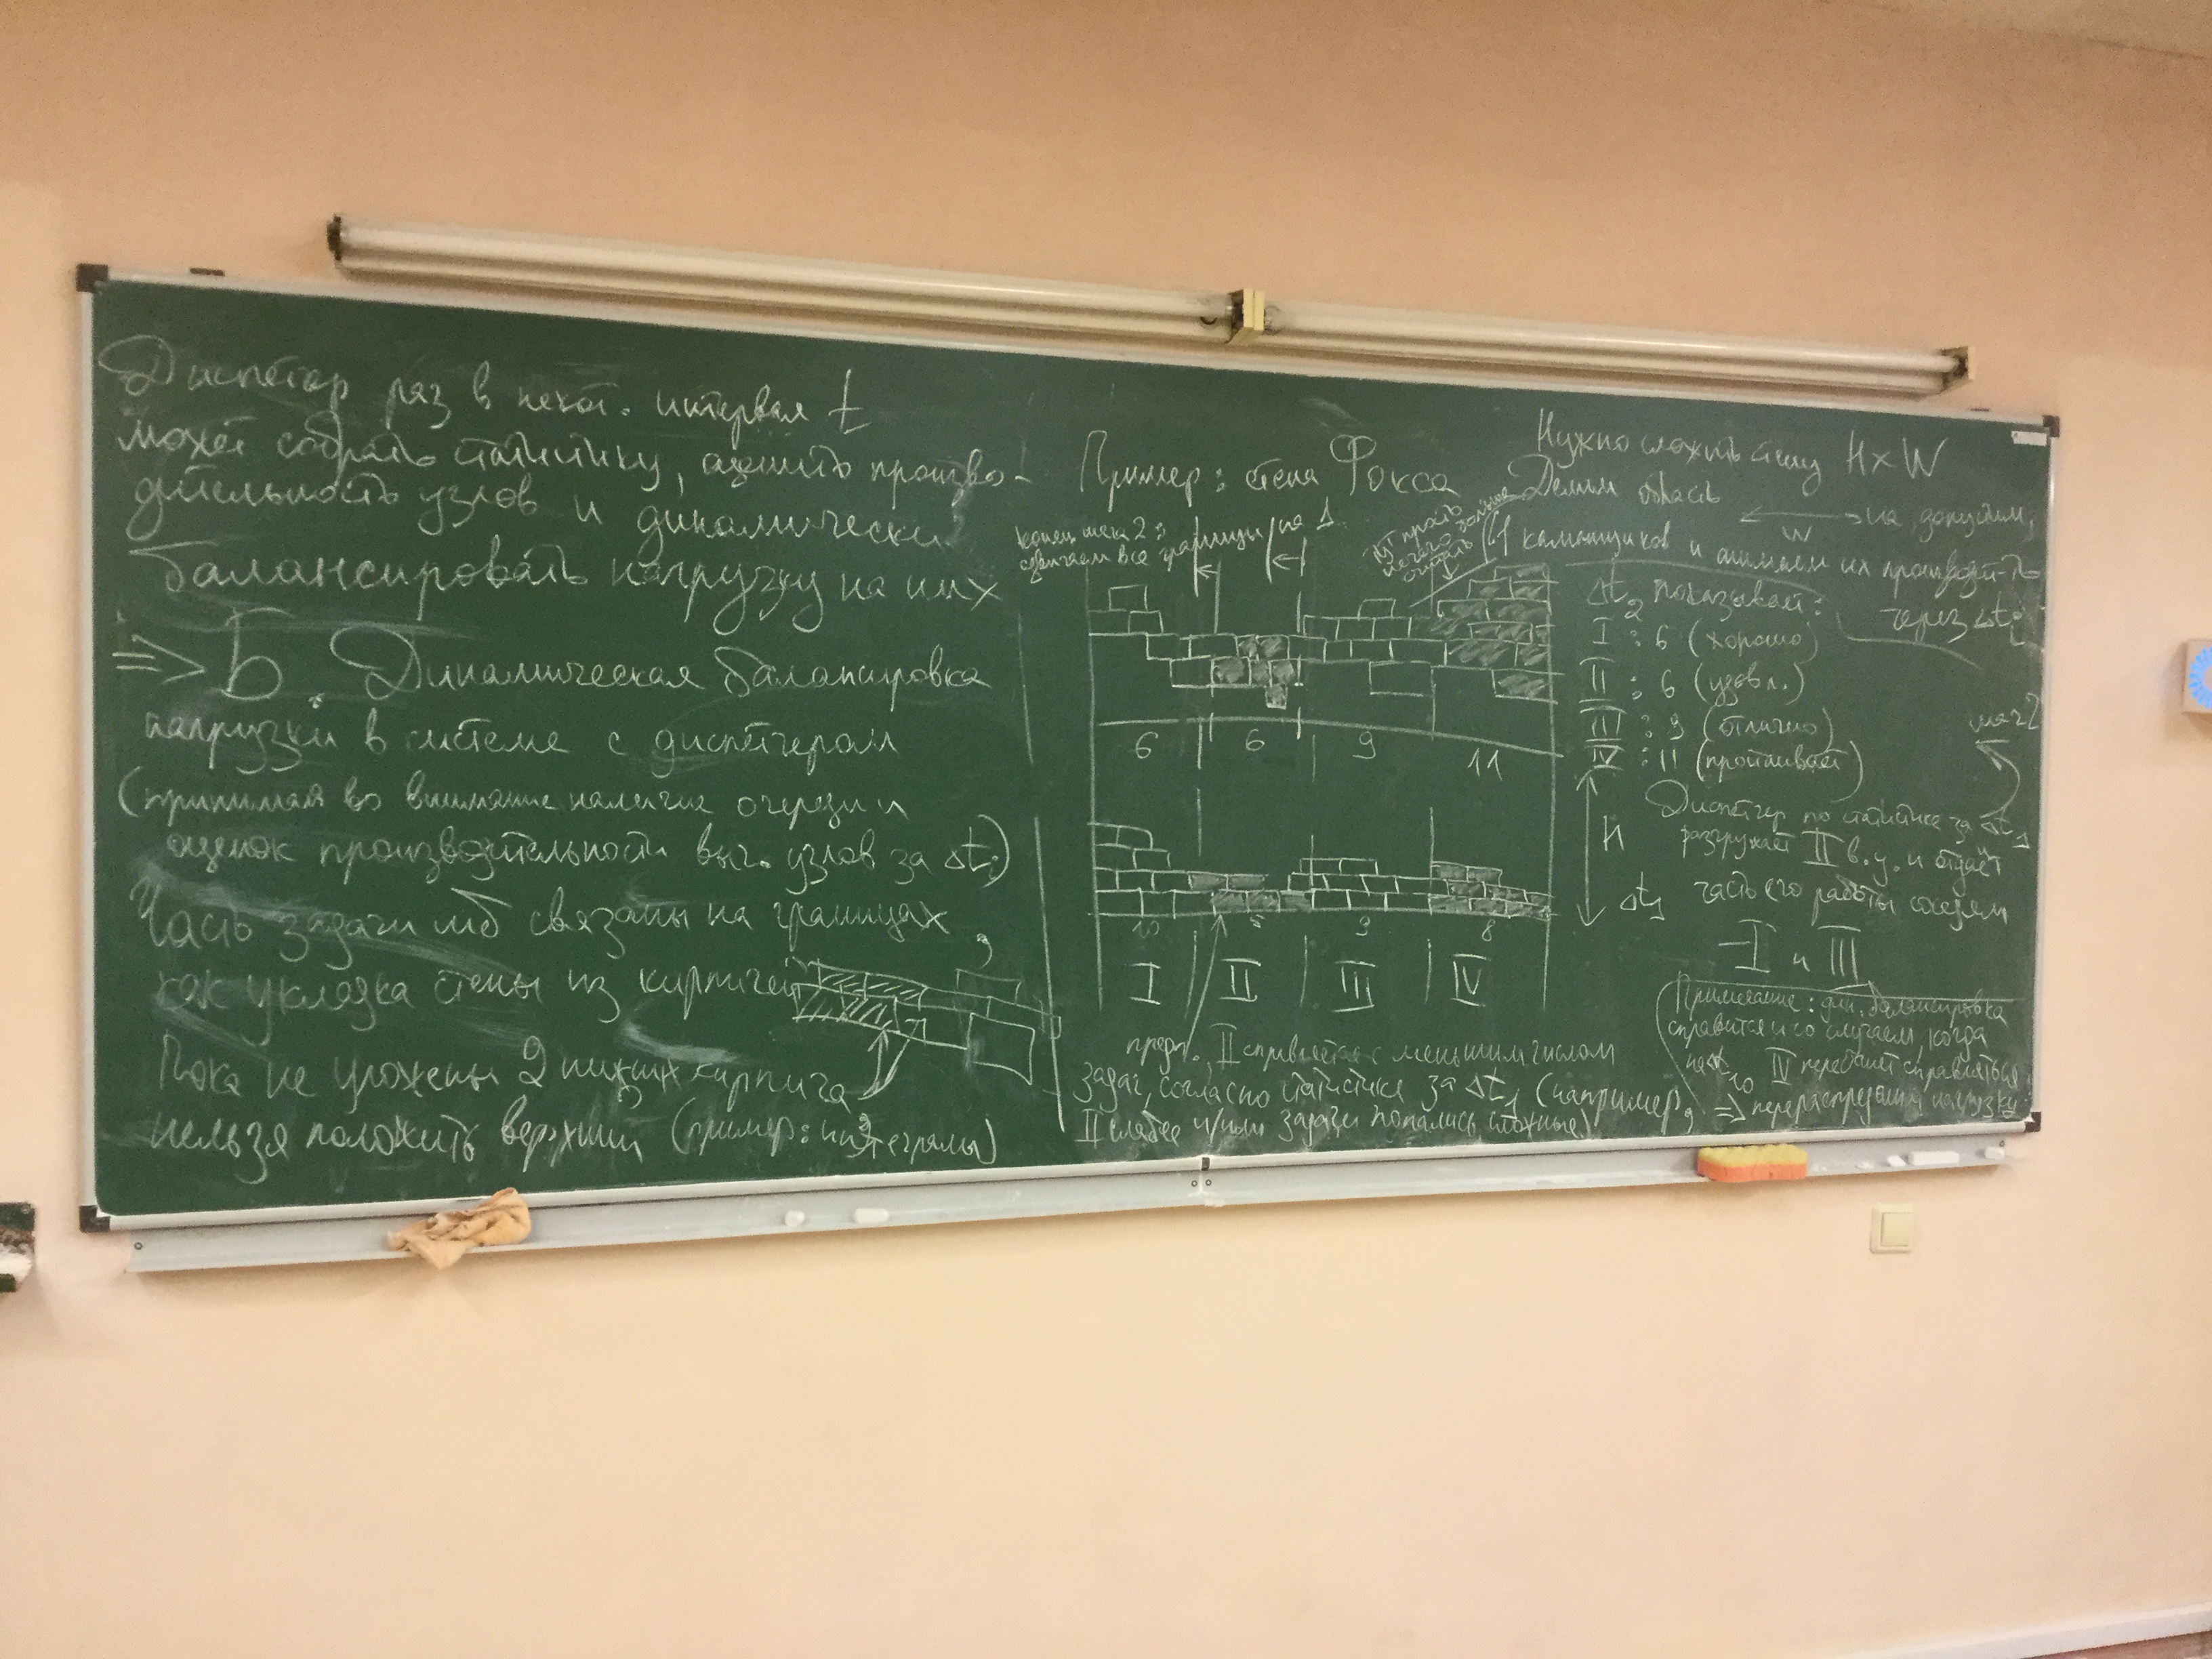 Диспетчер раз в некот. интервал t
может собрать статистику, оценить произво-
дительность узлов и динамически
балансировать нагрузку на них
=> Б. Динамическая балансировка
нагрузки в системе с диспетчером
(принимая во внимание наличие очереди и
оценок производительности выч. узлов за Δtᵢ)
Часть задачи мб связаны на границах,
как укладка стены из кирпичей
Пока не уложены 2 нижних кирпича
нельзя положить верхний (пример: интегралы)
Пример: стена Фокса
конец шага 2:
сдвигаем все границы на Δ
6 6 9 11
10 5 9 8
I II III IV
предп., II справляется с меньшим числом
задач, согласно статистике за Δt₁ (например,
II слабее и/или задачи попались сложные)
Нужно сложить стену H×W
Делим область
W
на, допустим,
4 каменщиков и оценим их производит-ть
через Δtᵢ
Δt₂ показывает:
I : 6 (хорошо)
II : 6 (удовл.)
III : 9 (отлично)
IV : 11 (простаивает)
шаг 2
H
Δt₁
Диспетчер по статистике за Δt₁
разгружает II в.у. и отдаёт
часть его работы соседям
I и III
Примечание: дин. балансировка
справится и со случаем, когда
IV перестанет справляться
=> перераспределим нагрузку